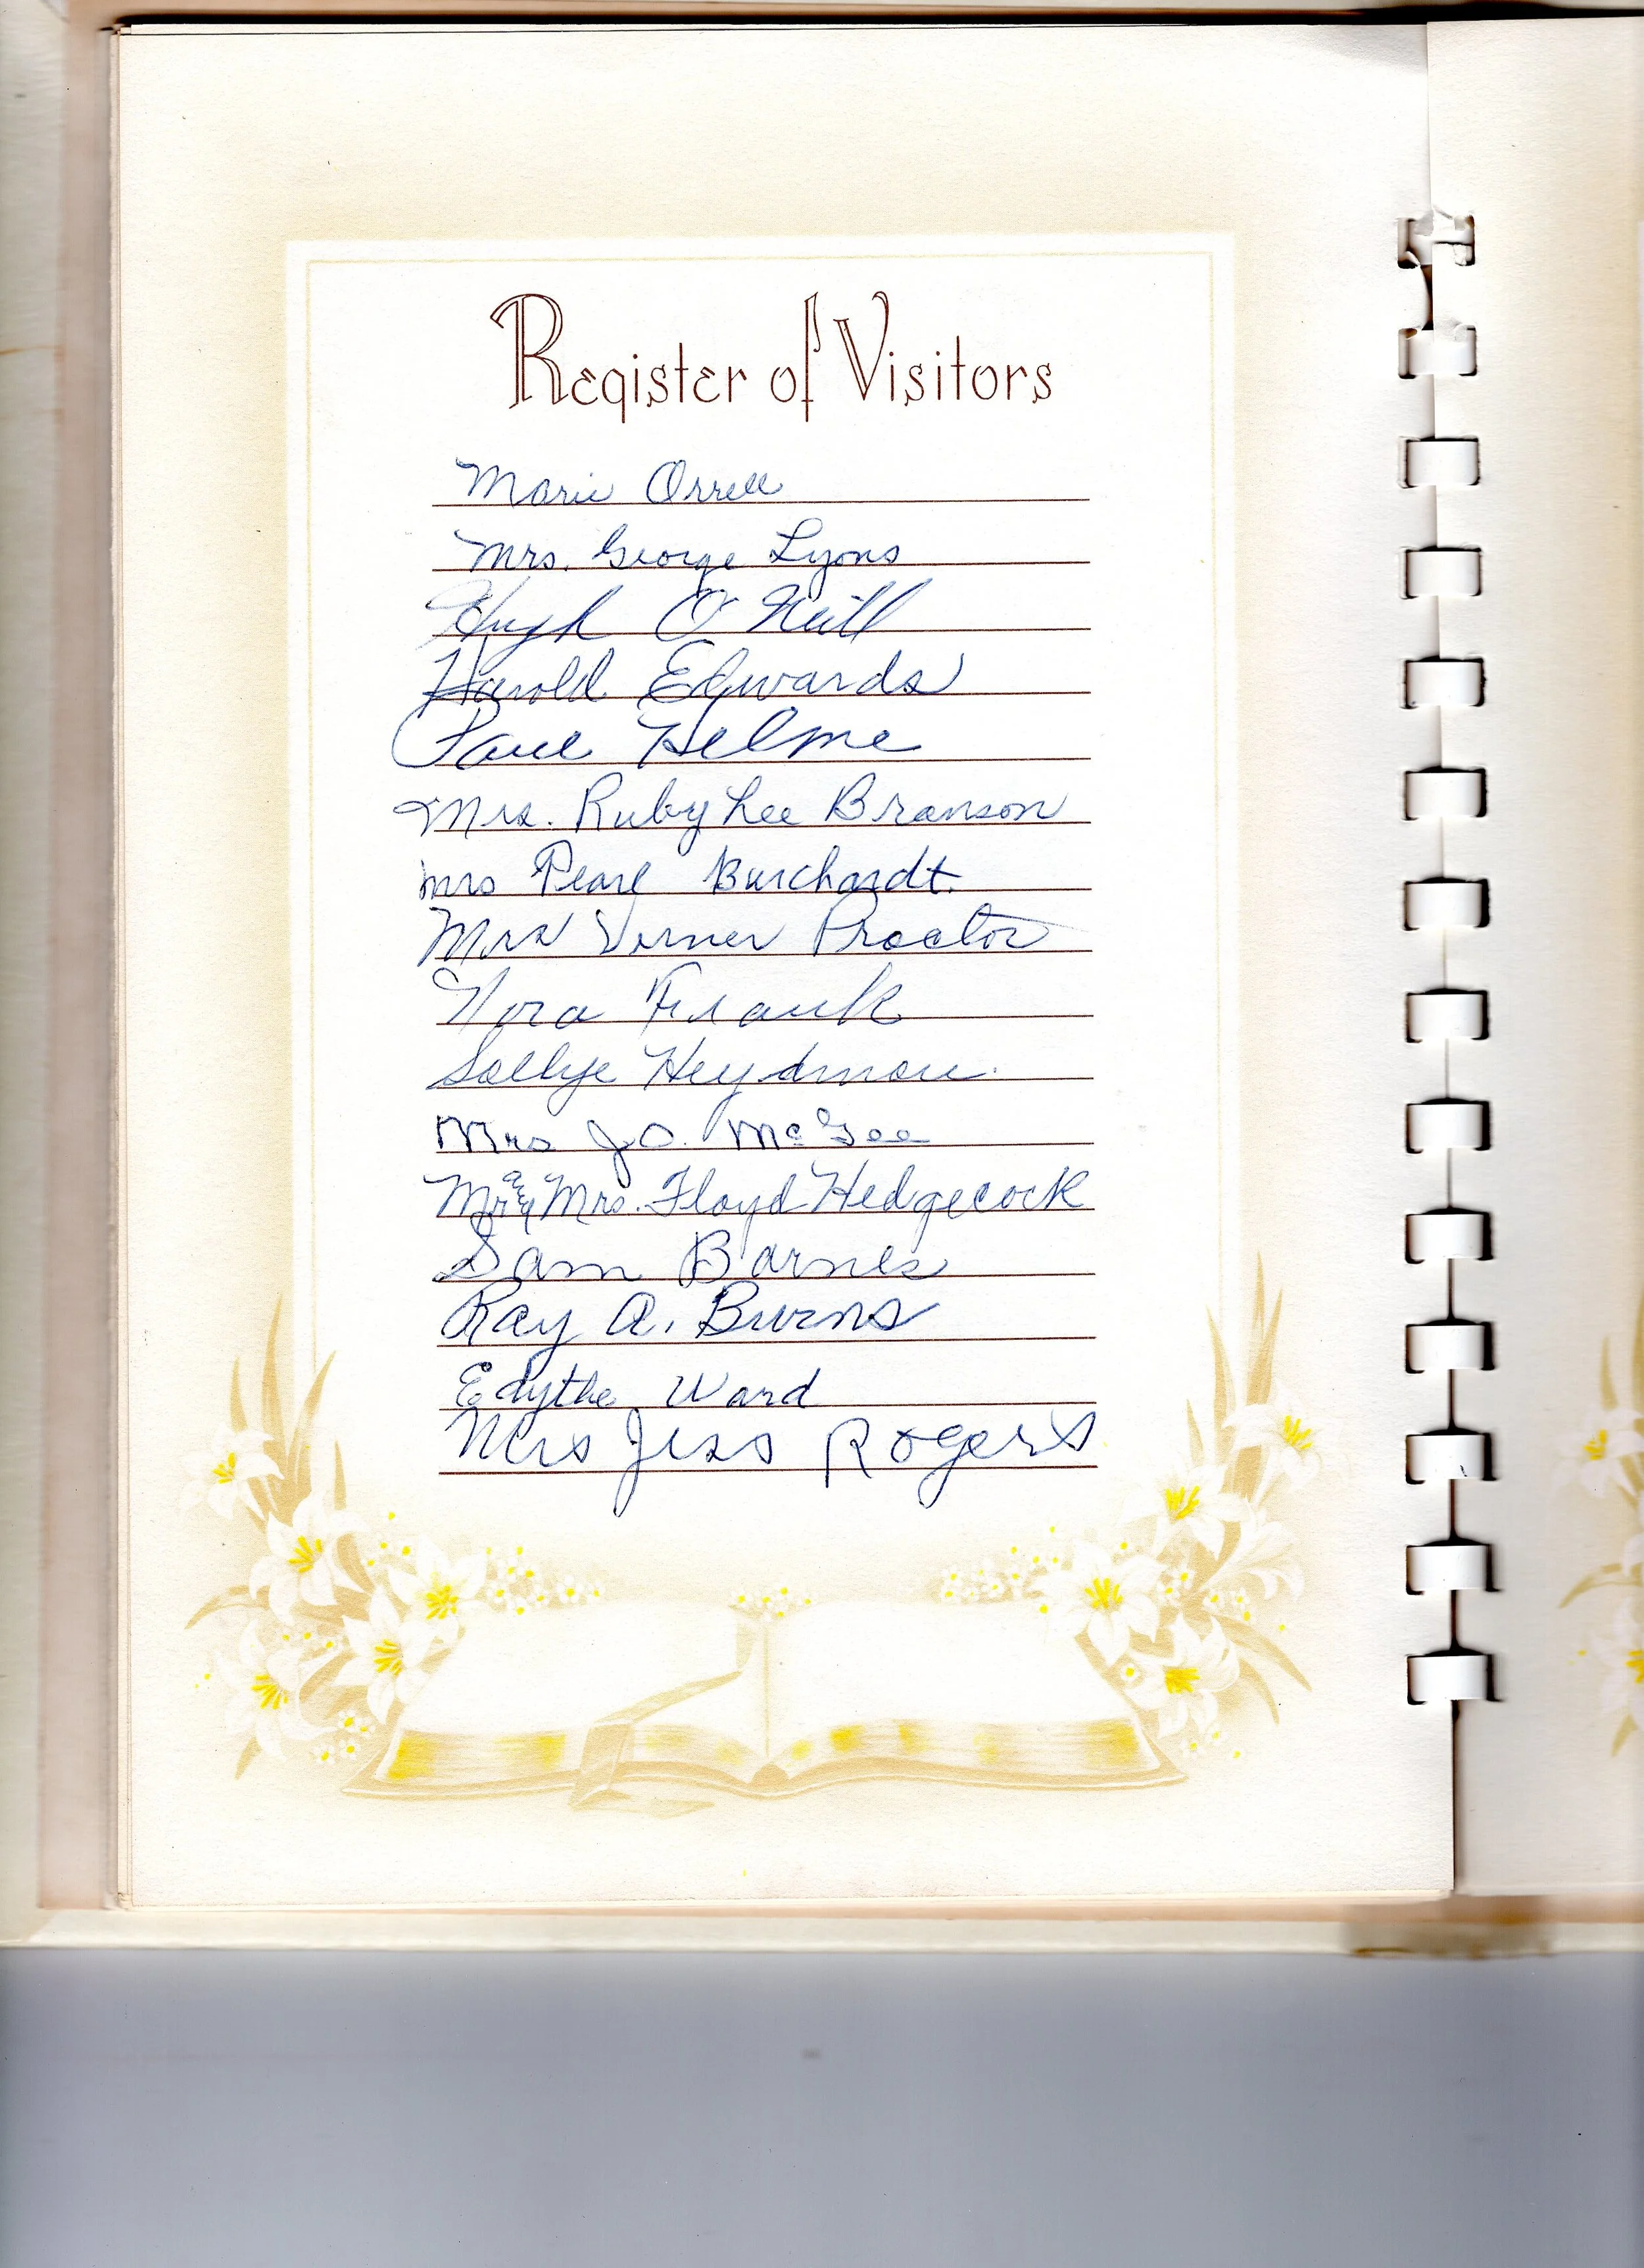 Register of Visitors
Marie Orrell
Mrs. George Lyons
Hugh O'Neill
Harold Edwards
Paul Helme
Mrs. Ruby Lee Branson
Mrs Pearl Burchardt.
Mrs Verner Proctor
Nora Frank
Sallye Heydman.
Mrs J.O. McGee
Mr and Mrs. Floyd Hedgecock
Sam Barnes
Ray A. Burns
Edythe Ward
Mrs Jess Rogers